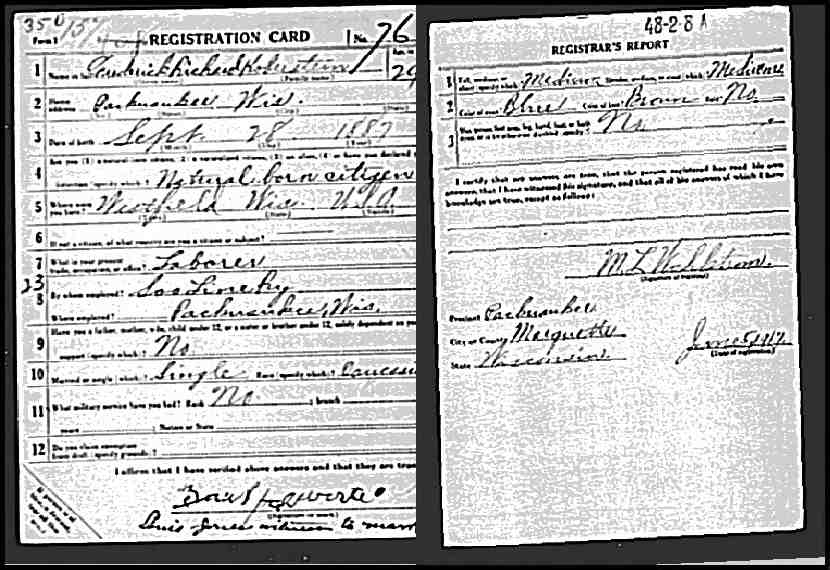 350 157
Form 1 REGISTRATION CARD No. 76
1 Frederick Richard 29
2 Home address Packwaukee Wis.
3 Date of birth Sept. 28 1887
4 Are you (1) a natural-born citizen, (2) a naturalized citizen, (3) an alien, (4) or have you declared
intention (specify which)? Natural born citizen
5 Where were you born? Westfield Wis. U.S.A.
6 If not a citizen, of what country are you a citizen or subject?
7 What is your present trade, occupation, or office? Laborer
23
8 By whom employed? Soo Line Ry
Where employed? Packwaukee, Wis.
9 Have you a father, mother, wife, child under 12, or a sister or brother under 12, solely dependent on
support (specify which)? No
10 Married or single (which)? Single Race (specify which)? Caucasi
11 What military service have you had? Rank No branch
years Nation or State
12 Do you claim exemption from draft (specify grounds)?
I affirm that I have verified above answers and that they are true
(Signature or mark)
Louis Jones witness to mark
48-2-8 A
REGISTRAR'S REPORT
1 Tall, medium, or short (specify which)? Medium Slender, medium, or stout (which)? Medium
2 Color of eyes? Blue Color of hair? Brown Bald? No
3 Has person lost arm, leg, hand, foot, or both eyes, or is he otherwise disabled (specify)? No
I certify that my answers are true, that the person registered has read his own
answers, that I have witnessed his signature, and that all of his answers of which I have
knowledge are true, except as follows:
M. L.
(Signature of registrar)
Precinct Packwaukee
City or County Marquette
State Wisconsin June 5, 1917
(Date of registration)